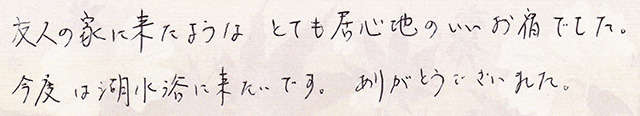 友人の家に来たような とても居心地のいいお宿でした。
今度は湖水浴に来たいです。 ありがとうございました。